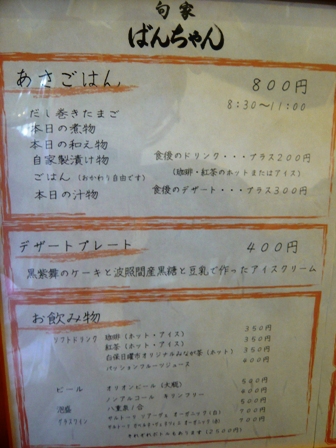 旬家
ばんちゃん
あさごはん 800円
8:30〜11:00
だし巻きたまご
本日の煮物
本日の和え物
自家製漬け物 食後のドリンク・・・プラス200円
ごはん(おかわり自由です) (珈琲・紅茶のホットまたはアイス)
本日の汁物 食後のデザート・・・プラス300円
デザートプレート 400円
黒紫舞のケーキと波照間産黒糖と豆乳で作ったアイスクリーム
お飲み物
ソフトドリンク 珈琲(ホット・アイス) 350円
紅茶(ホット・アイス) 350円
白保日曜市オリジナルみなが茶(ホット) 350円
パッションフルーツジュース 400円
ビール オリオンビール(大瓶) 540円
ノンアルコール キリンフリー 400円
泡盛 八重泉1合 500円
700円
700円
(2500円)